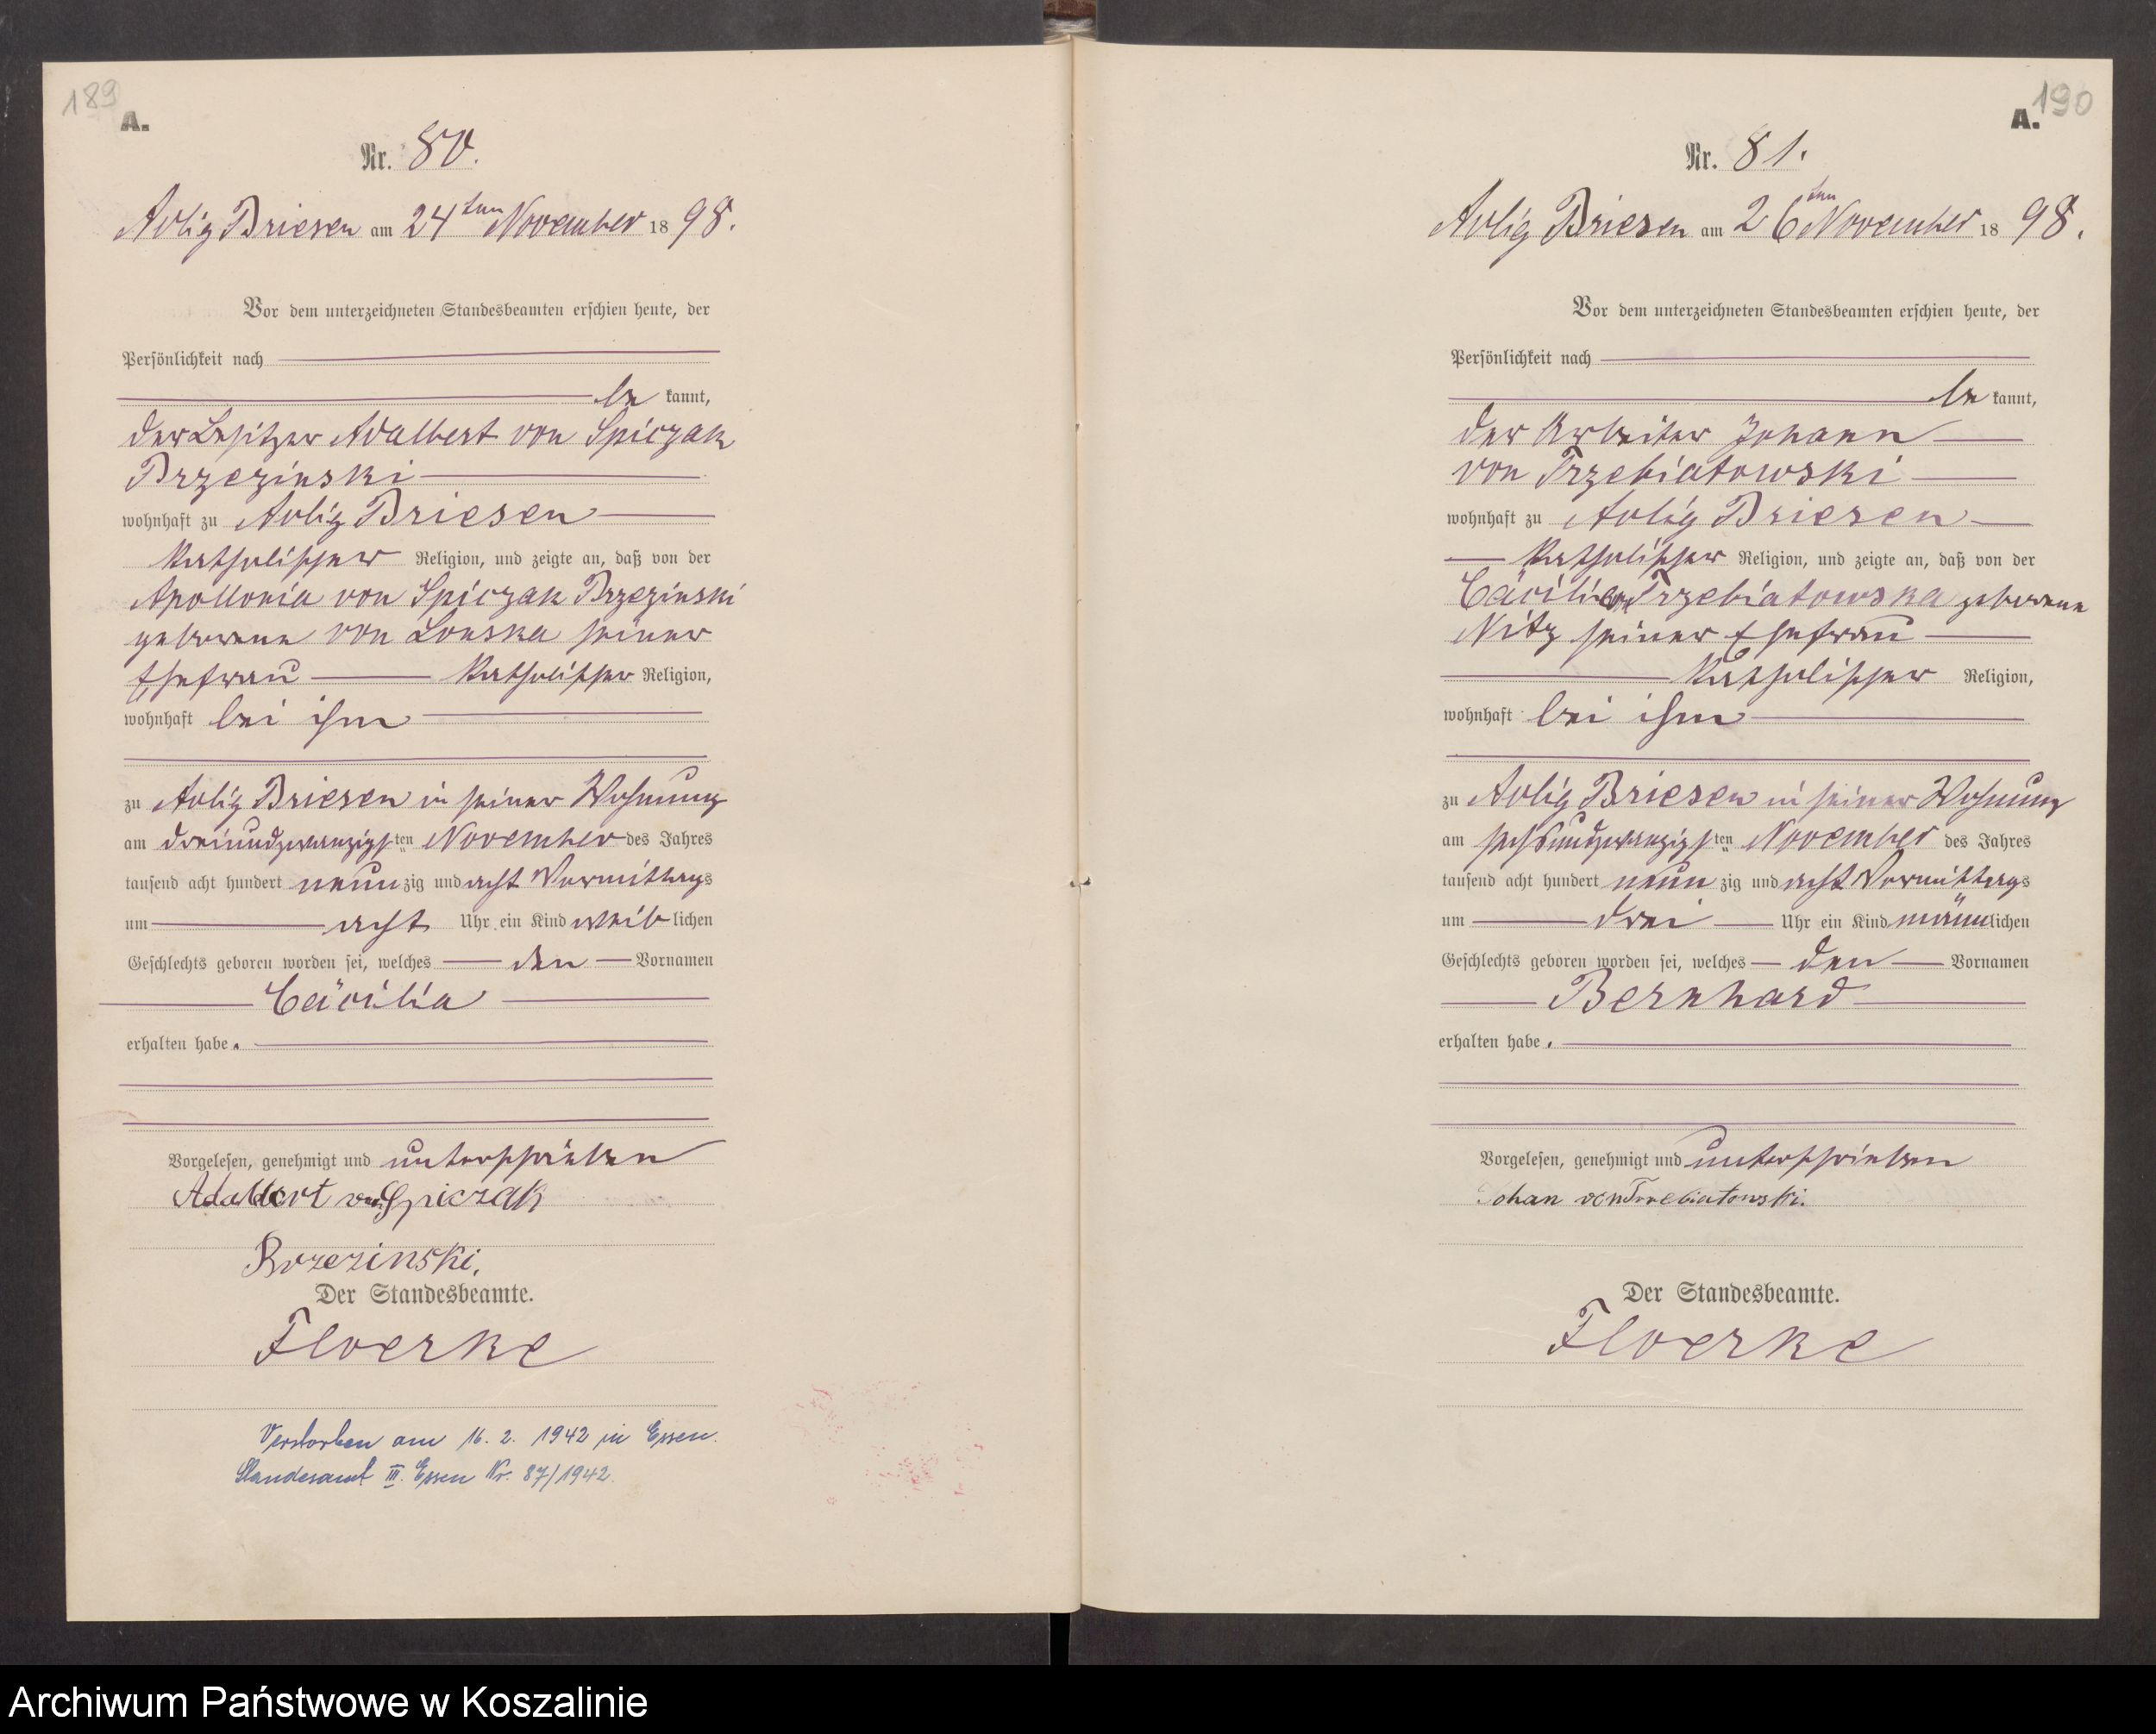 189
A.
Nr. 80.
Adlig Briesen am 24ten November 1898.
Vor dem unterzeichneten Standesbeamten erschien heute, der
Persönlichkeit nach
be kannt,
der Besitzer Adalbert von Spiczak
Brzezinski
wohnhaft zu Adlig Briesen
katholischer Religion, und zeigte an, daß von der
Apollonia von Spiczak Brzezinski
geborene von Lonska seiner
Ehefrau katholischer Religion,
wohnhaft bei ihm
zu Adlig Briesen in seiner Wohnung
am dreiundzwanzigsten November des Jahres
tausend acht hundert neunzig und acht Vormittags
um acht Uhr ein Kind weiblichen
Geschlechts geboren worden sei, welches den Vornamen
Cäcilia
erhalten habe.
Vorgelesen, genehmigt und unterschrieben
Adalbert von Spiczak
Brzezinski,
Der Standesbeamte.
Floerke
Verstorben am 16. 2. 1942 in Essen.
Standesamt III. Essen Nr. 87/1942.
190
A.
Nr. 81.
Adlig Briesen am 26ten November 1898.
Vor dem unterzeichneten Standesbeamten erschien heute, der
Persönlichkeit nach
be kannt,
der Arbeiter Johann
von Trzebiatowski
wohnhaft zu Adlig Briesen
katholischer Religion, und zeigte an, daß von der
Cäcilie von Trzebiatowska geborene
Nitz seiner Ehefrau
katholischer Religion,
wohnhaft bei ihm
zu Adlig Briesen in seiner Wohnung
am sechsundzwanzigsten November des Jahres
tausend acht hundert neun zig und acht Vormittags
um drei Uhr ein Kind männlichen
Geschlechts geboren worden sei, welches den Vornamen
Bernhard
erhalten habe.
Vorgelesen, genehmigt und unterschrieben
Johan von Trzebiatowski.
Der Standesbeamte.
Floerke
Archiwum Państwowe w Koszalinie